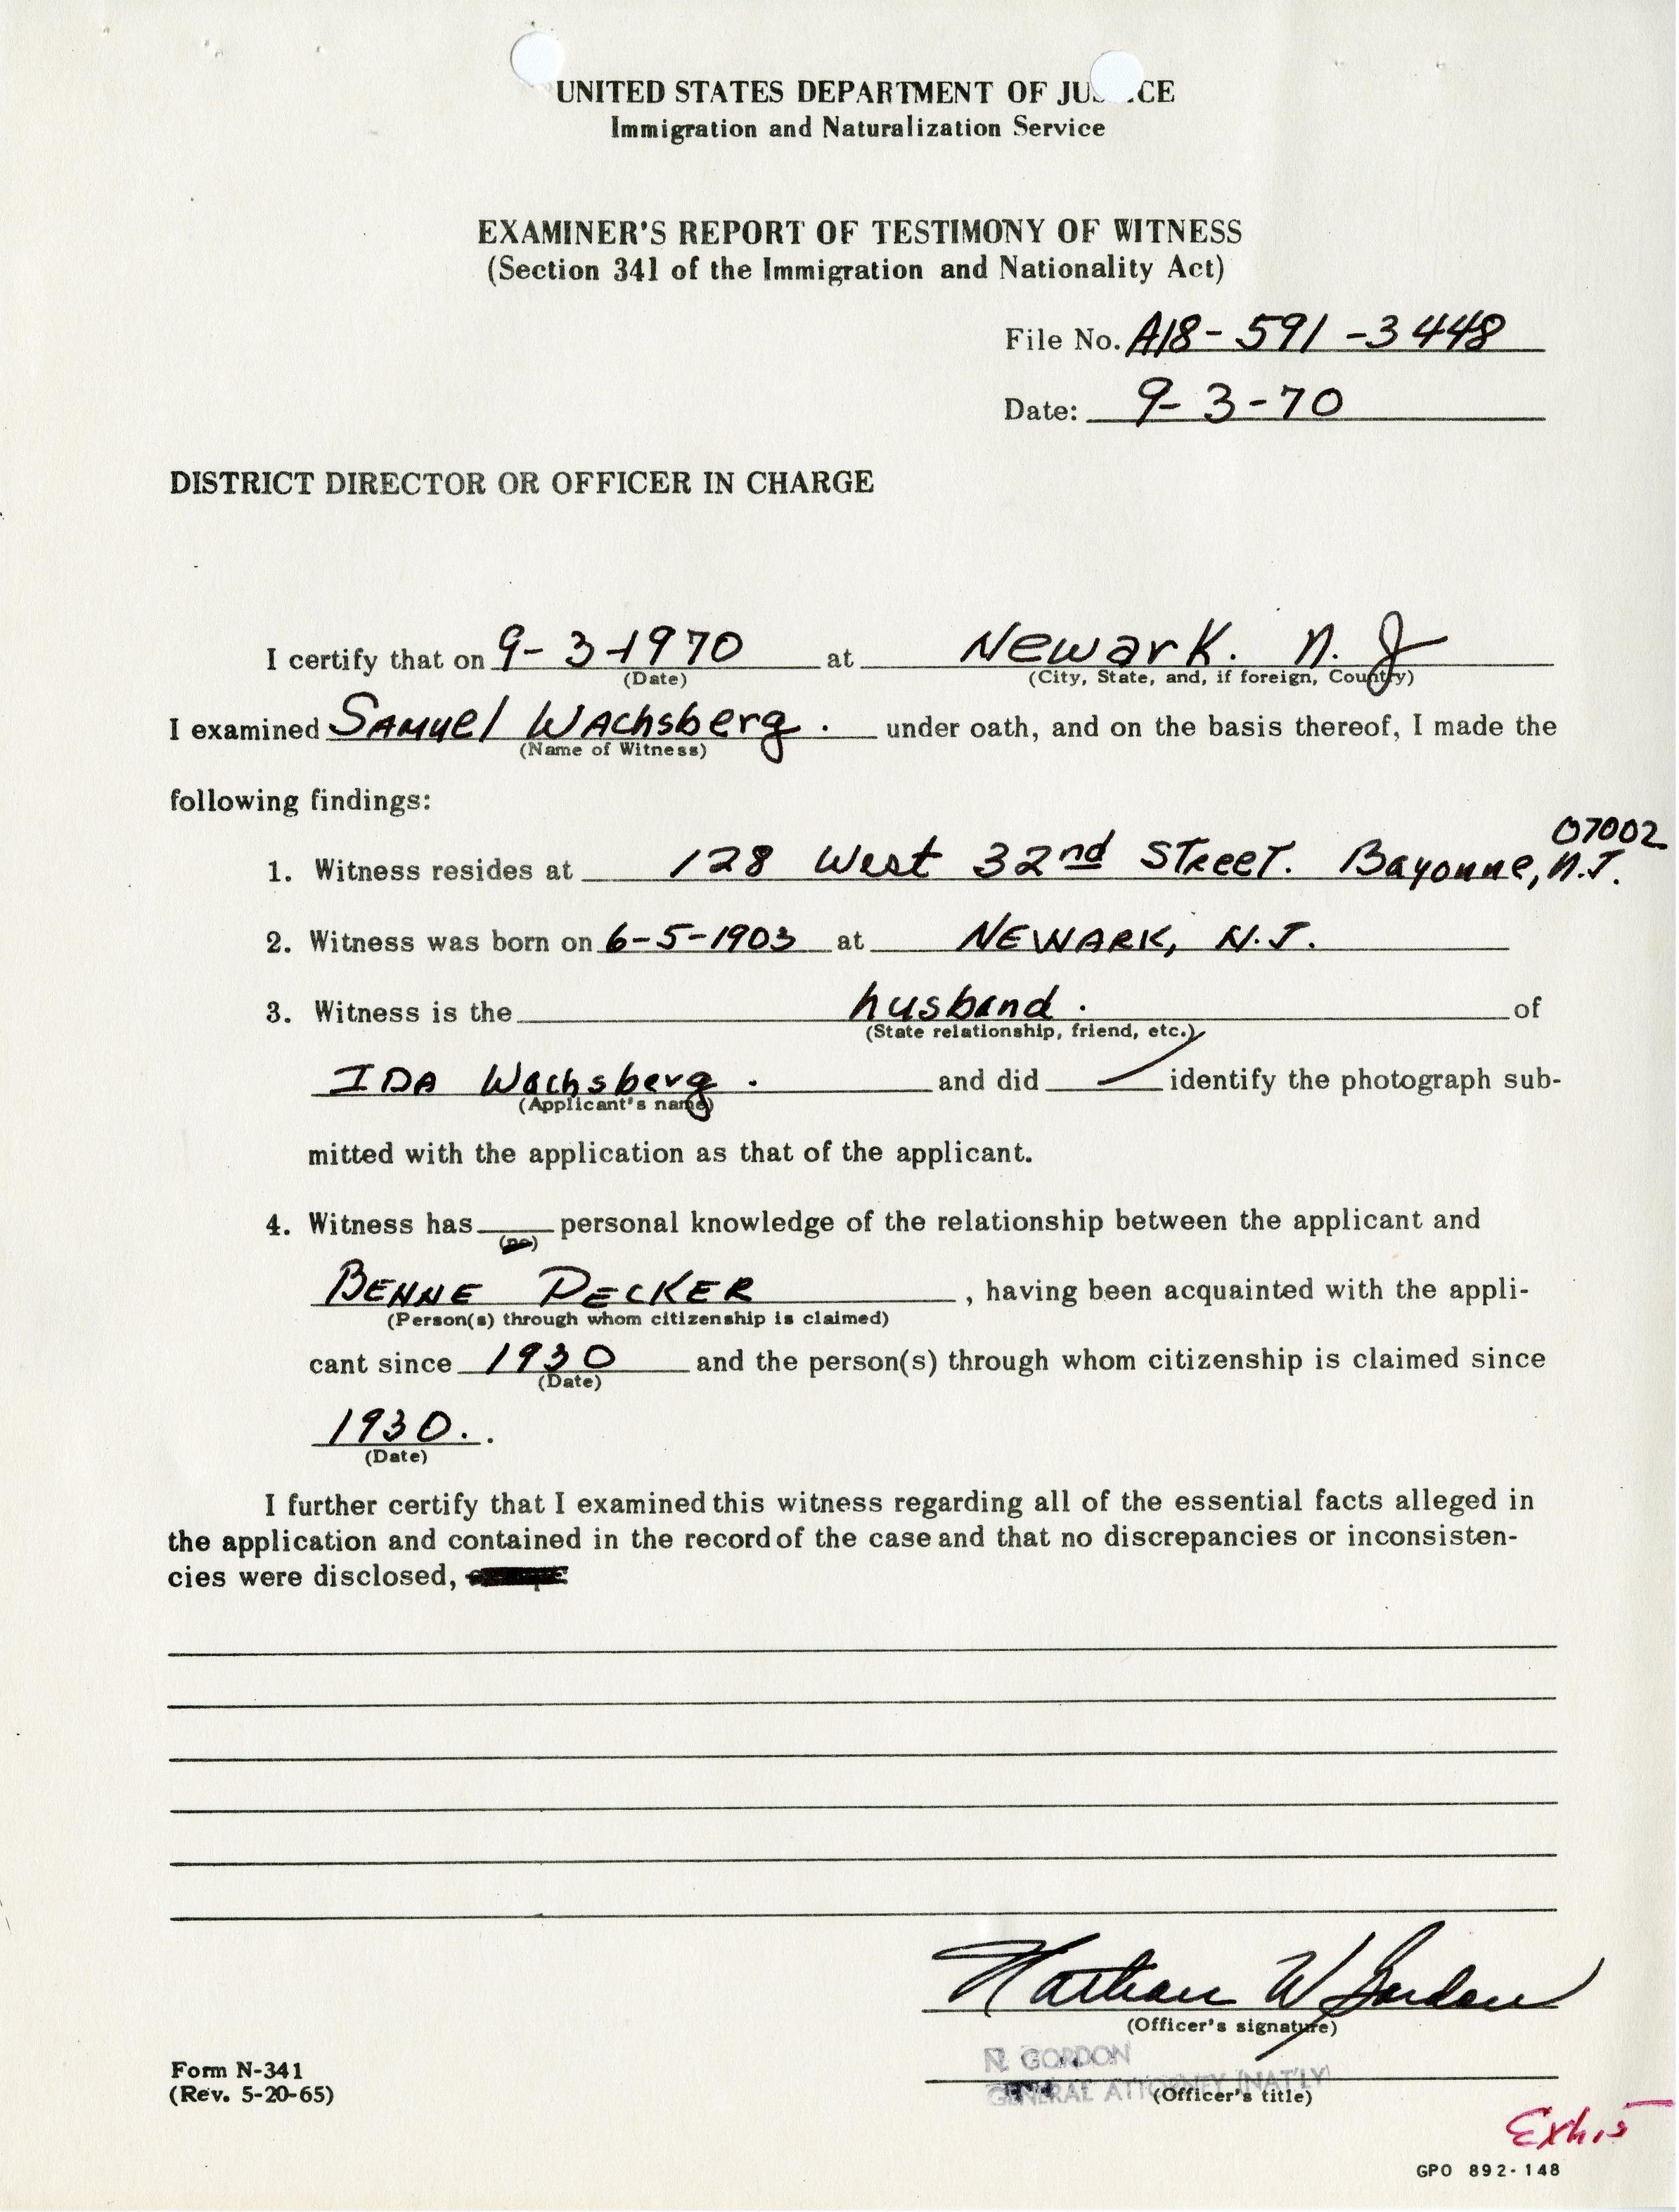 UNITED STATES DEPARTMENT OF JUS CE
Immigration and Naturalization Service
EXAMINER'S REPORT OF TESTIMONY OF WITNESS
(Section 341 of the Immigration and Nationality Act)
File No. A18-591-3448
Date: 9-3-70
DISTRICT DIRECTOR OR OFFICER IN CHARGE
I certify that on 9-3-1970 at Newark. N.J
(Date) (City, State, and, if foreign, Country)
I examined Samuel Wachsberg. under oath, and on the basis thereof, I made the
(Name of Witness)
following findings:
07002
1. Witness resides at 128 West 32nd Street. Bayonne, N.J.
2. Witness was born on 6-5-1903 at NEWARK, N.J.
3. Witness is the husband. of
(State relationship, friend, etc.)
IDA Wachsberg. and did identify the photograph sub-
(Applicant's name)
mitted with the application as that of the applicant.
4. Witness has personal knowledge of the relationship between the applicant and
(no)
BENNE DECKER , having been acquainted with the appli-
(Person(s) through whom citizenship is claimed)
cant since 1930 and the person(s) through whom citizenship is claimed since
(Date)
1930. .
(Date)
I further certify that I examined this witness regarding all of the essential facts alleged in
the application and contained in the record of the case and that no discrepancies or inconsisten-
cies were disclosed,
Nathan W Gordon
(Officer's signature)
N. GORDON
GENERAL ATTORNEY (NAT'LY)
(Officer's title)
Form N-341
(Rev. 5-20-65)
Exh. 5
GPO 892-148